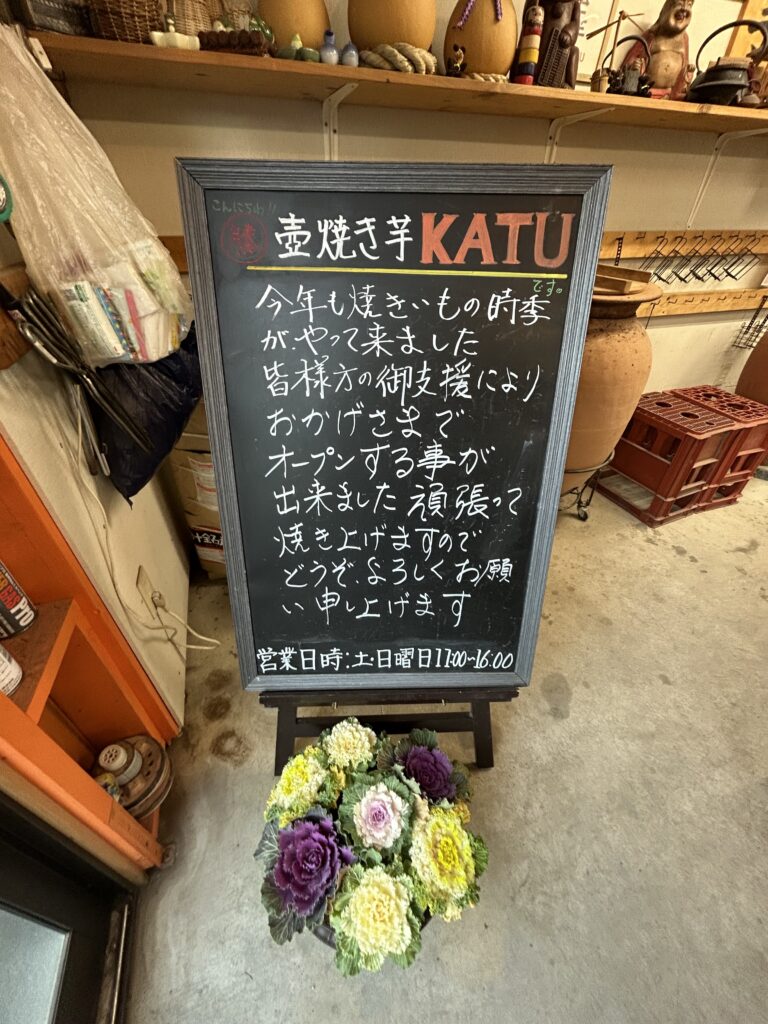 こんにちわ!!
壺焼き芋KATU
です。
今年も焼きいもの時季
が、やって来ました
皆様方の御支援により
おかげさまで
オープンする事が
出来ました 頑張って
焼き上げますので
どうぞ、よろしくお願
い申し上げます
営業日時:土・日曜日11:00~16:00
PRO